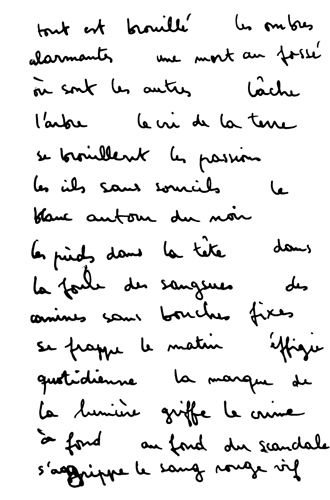 tout est brouillé les ombres
alarmantes une mort au fossé
où sont les autres lâche
l'arbre le cri de la terre
se brouillent les passions
les cils sans sourcils le
blanc autour du noir
les pieds dans la tête dans
la foule des sangsues des
canines sans bouches fixes
se frappe le matin éffigie
quotidienne la marque de
la lumière griffe le crime
à fond au fond du scandale
s'agrippe le sang rouge vif